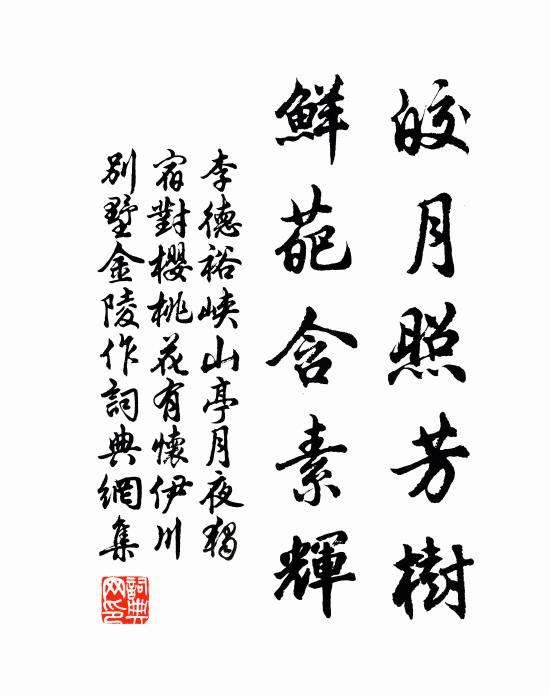 皎月照芳樹
鮮葩含素輝
李德裕峽山亭月夜獨
宿對櫻桃花有懷伊川
別墅金陵作詞典網集
詞典
网印